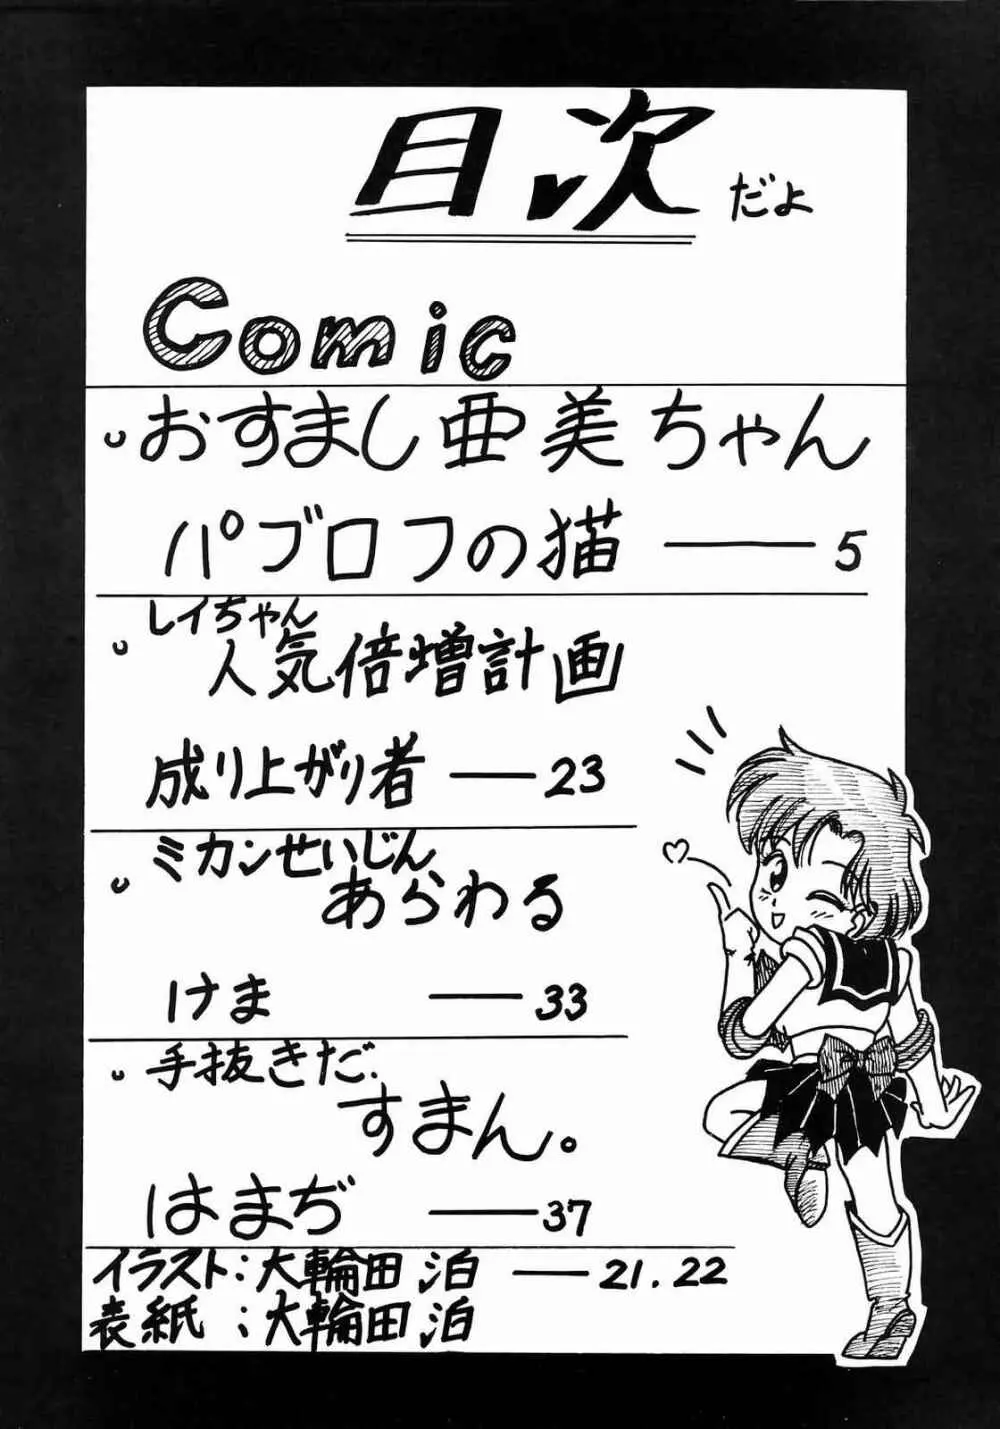 目次 だよ
Comic
おすまし亜美ちゃん
パブロフの猫 ―― 5
レイちゃん
人気倍増計画
成り上がり者 ―― 23
ミカンせいじん
あらわる
けま ―― 33
手抜きだ.
すまん。
はまぢ ―― 37
イラスト：大輪田 泊 ―― 21.22
表紙：大輪田 泊